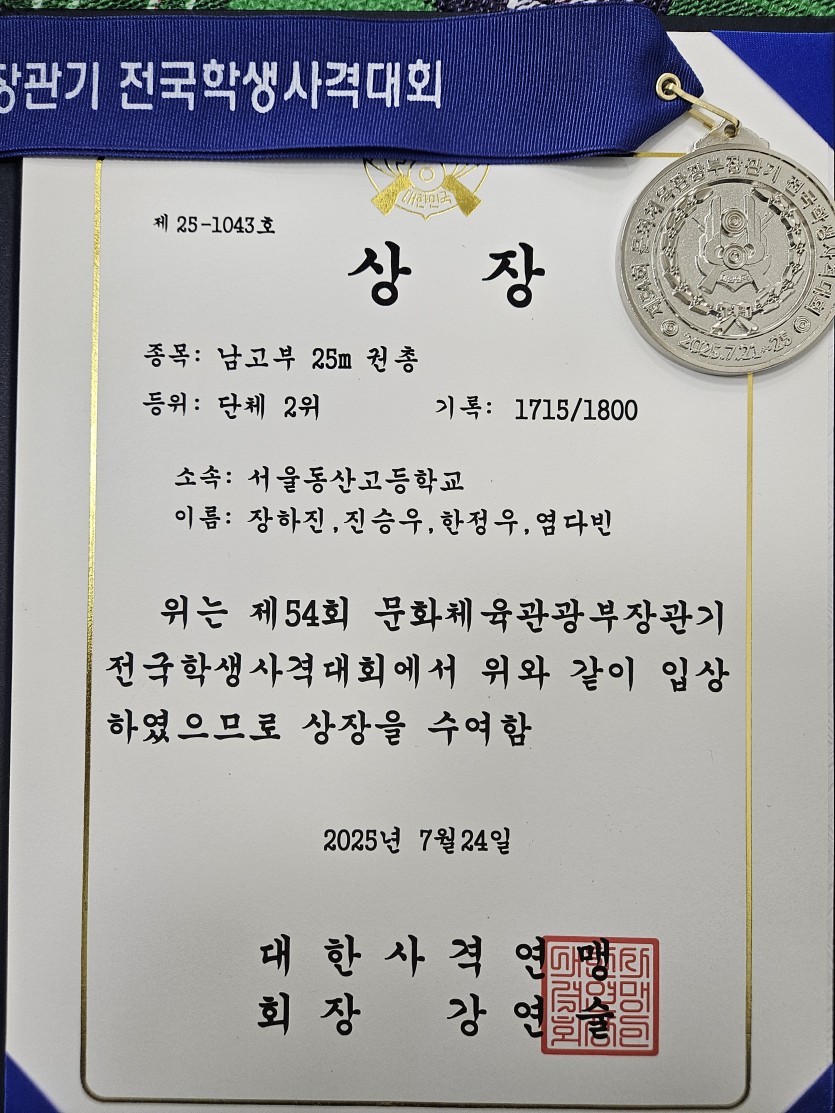 장관기 전국학생사격대회
제54회 문화체육관광부장관기 전국학생사격대회
2025.7.21~25
대한민국
제 25-1043호
상 장
종목: 남고부 25m 권총
등위: 단체 2위 기록: 1715/1800
소속: 서울동산고등학교
이름: 장하진,진승우,한정우,염다빈
위는 제54회 문화체육관광부장관기
전국학생사격대회에서 위와 같이 입상
하였으므로 상장을 수여함
2025년 7월24일
대 한 사 격 연 맹
회 장 강 연 술